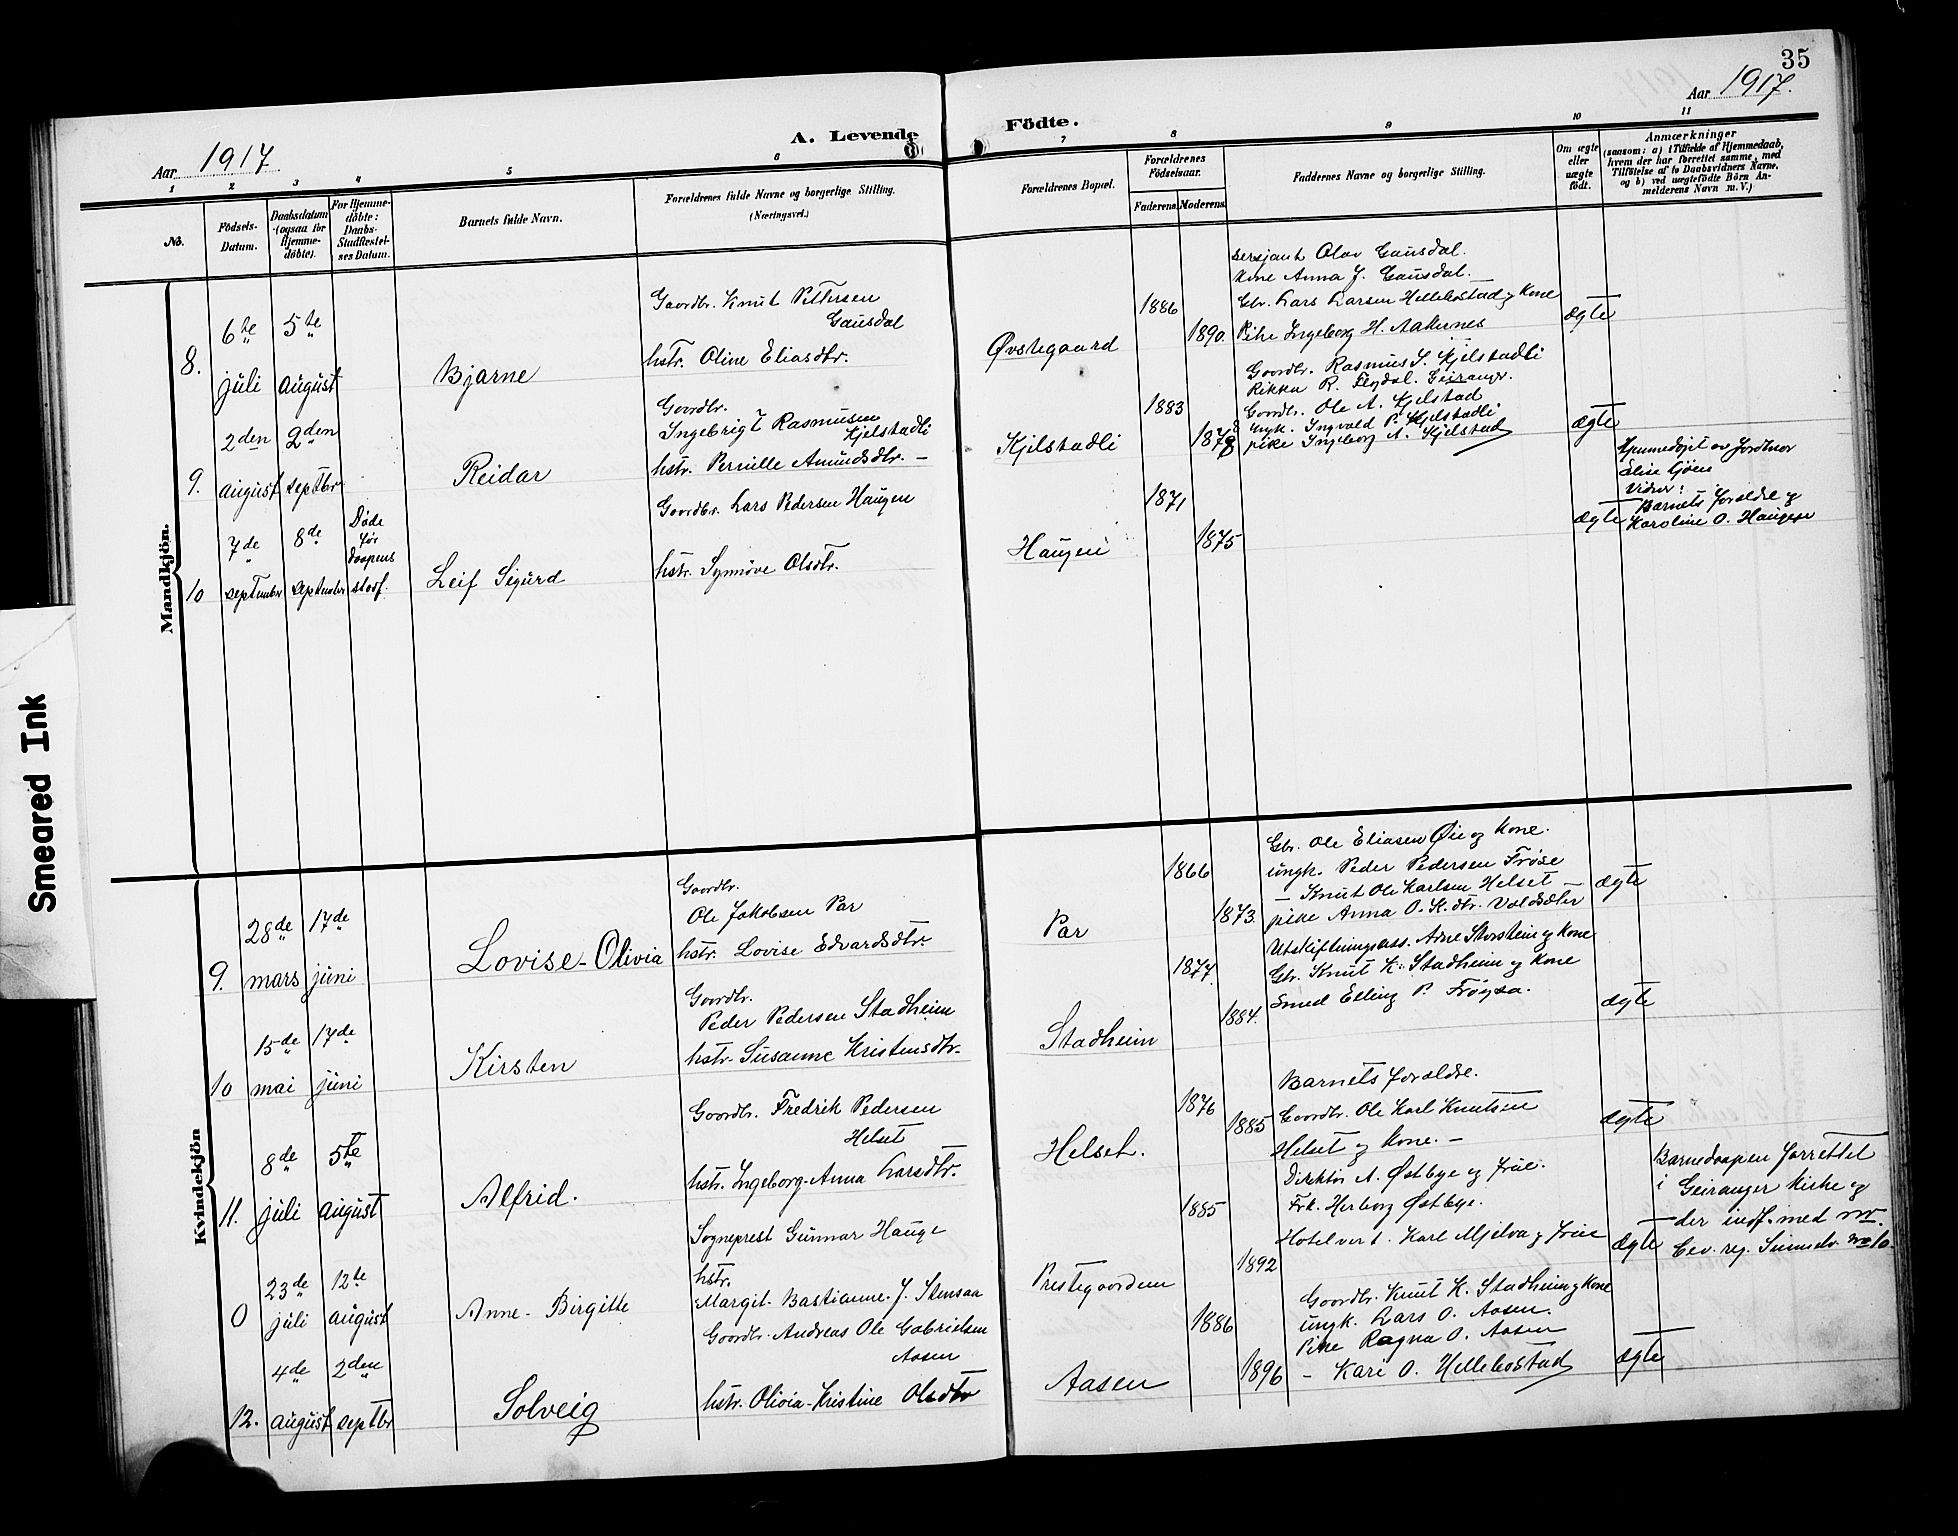 35
Aar 1917.
A. Levende Födte.
Aar 1917
1 2 3 4 5 6 7 8 9 10 11
No.
Födsels-Datum.
Daabsdatum (ogsaa for Hjemmedöbte).
For Hjemmedöbte: Daabs-Stadfæstelses Datum.
Barnets fulde Navn.
Forældrenes fulde Navne og borgerlige Stilling.
(Næringsvei.)
Forældrenes Bopæl.
Forældrenes Födselsaar.
Faderens. Moderens.
Faddernes Navne og borgerlige Stilling.
Om ægte eller uægte födt.
Anmærkninger
(saasom: a) i Tilfælde af Hjemmedaab, hvem der har forrettet samme, med Tilföielse af to Daabsvidners Navne, og b) ved uægtefödte Börn Anmelderens Navn m. V.)
Mandkjön.
8.
6te juli
5te august
Bjarne
Gaardbr. Knut Pettersen
Gausdal
hstr. Oline Eliasdtr.
Øvstegaard
1886
1890.
sersjant Olav Gausdal.
Kone Anna J. Gausdal.
Gbr. Lars Larsen Hellebostad og Kone
Pike Ingeborg H. Aakernes
ægte
9.
2den august
2den septbr
Reidar
Goordbr.
Ingebrigt Rasmusen
Kjelstadli
hstr. Pernille Amundsdtr. –
Kjelstadli
1883
1878
Goordbr. Rasmus S. Kjelstadli
Rikka R. Flydal. Geiranger.
Goordbr. Ole A. Kjelstad
Ungk. Ingvald P. Kjelstadli
pike Ingeborg A. Kjelstad
ægte
10
7de september
8de september
Døde før Daapens stadf.
Leif Sigurd
Goordbr. Lars Pedersen Haugen
hstr. Synnöve Olsdtr.
Haugen
1871
1875
ægte
Hjemmedöpt av Jordmor
Eline Gjöen
Vidner:
Barnets foraldre og
Karoline O. Haugen
Kvindekjön
9.
28de mars
17de juni
Lovise-Olivia
Goordbr.
Ole Jakobsen Par
hstr. Lovise Edvardsdtr.
Par
1866
1873.
Gbr. Ole Eliasen Øie og Kone.
ungk. Peder Pedersen Frøse
– Knut Ole Karlsen Helset
pike Anna O. K. dtr. Voldsdtr
ægte
10
15de mai
17de juni
Kirsten
Goordbr.
Peder Pedersen Stadheim
hstr. Susanne Kristensdtr.
Stadheim
1877.
1884.
Utskiftningsass. Arne Storstein og Kone
Gbr. Knut K. Stadheim og Kone
Smed Elling P. Frøysa.
ægte
11.
8de juli
5te august
Alfrid.
Goordbr. Fredrik Pedersen
Helset
hstr. Ingeborg-Anna Larsdtr.
Helset.
1876
1885
Barnets foraldre.
Goordbr. Ole Karl Knutsen
Helset og Kone. –
ægte
0
23de juli
12te august
Anne-Birgitte
Sogneprest Gunnar Hauge
hstr.
Margit-Bastianne J. Stensaa
Prestegaarden
1885
1892
Direktör A. Østbye og frue.
Frk. Herborg Østbye.
Hotelvert. Karl Mjelva og frue
ægte
Barnedaapen forrettet
i Geiranger Kirke og
der indf. med nr.
12.
4de august
2den septbr
Solveig
Goordbr. Andreas Ole Gabrielsen
Aasen
hstr. Olivia-Kristine Olsdtr
Aasen
1886
1896
Goordbr. Knut K. Stadheim og Kone
ungk. Lars O. Aasen.
Pike Ragna O. Aasen
– Kari O. Hellebostad
ægte
Smeared Ink